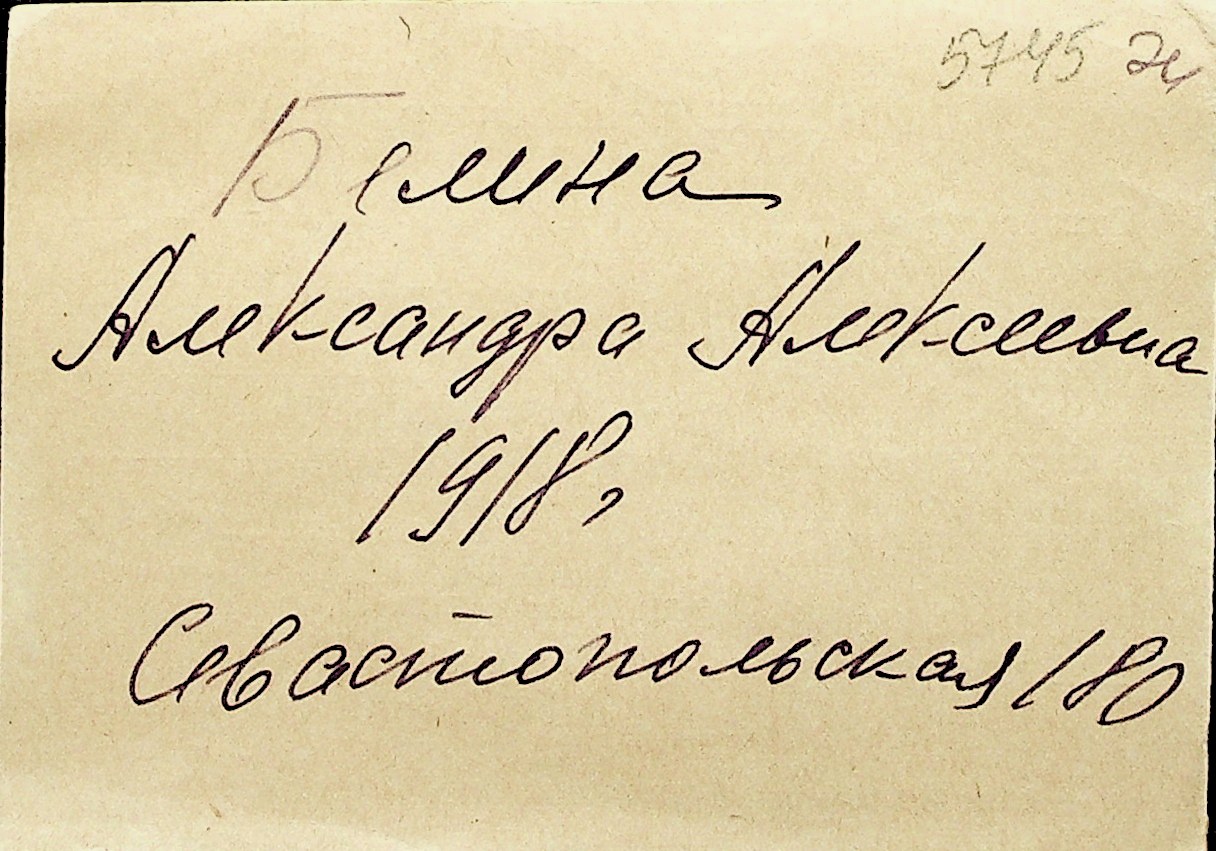 5745
Белина
Александра Алексеевна
1918г
Севастопольская 180